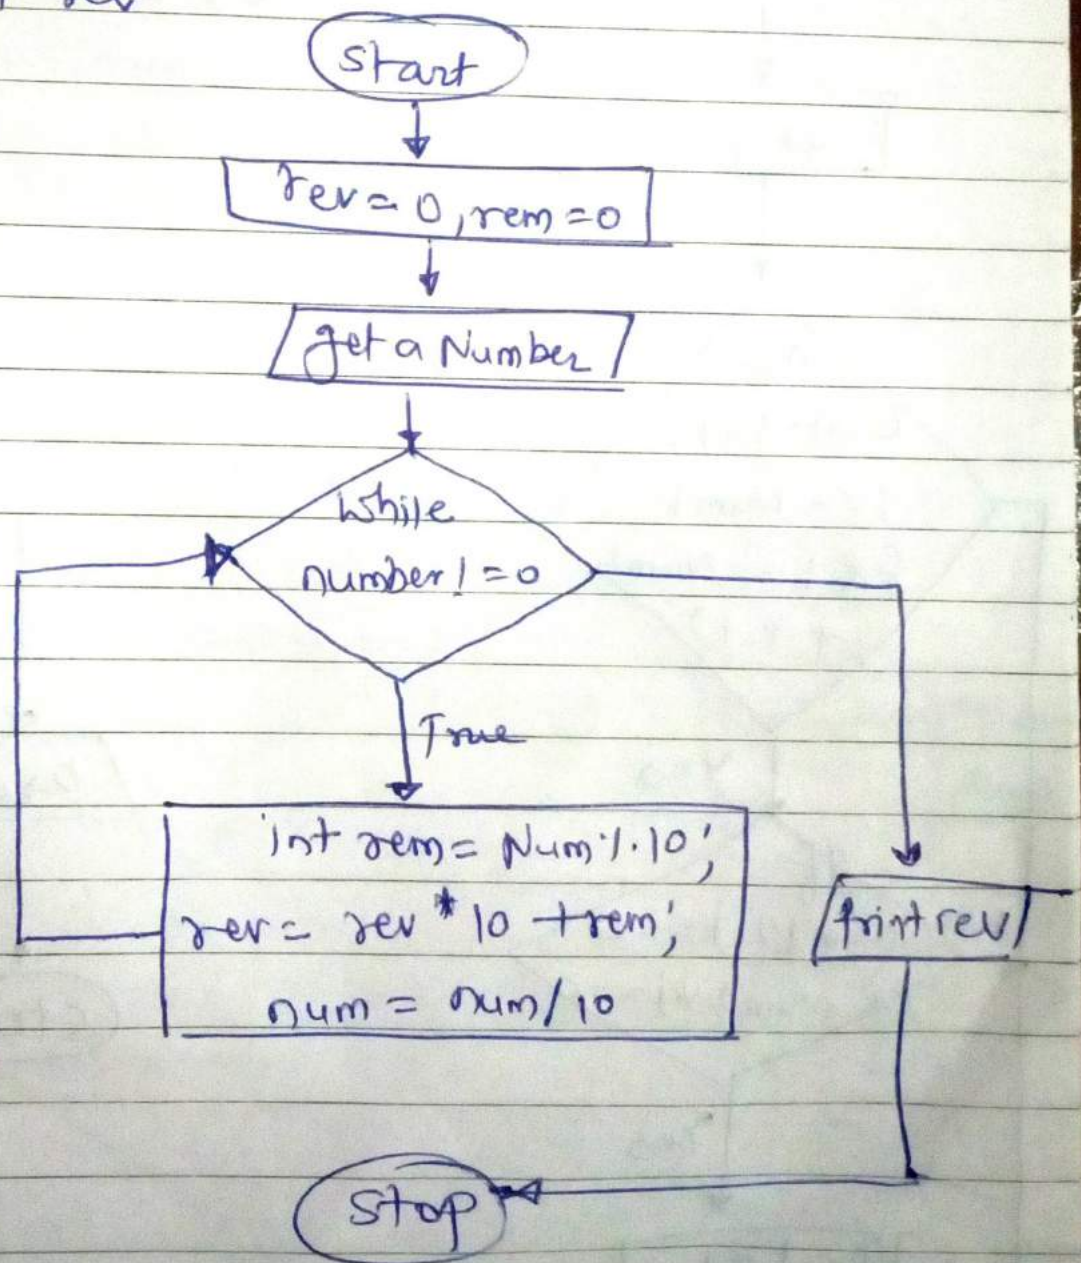 Start
rev = 0, rem = 0
get a Number
While
number != 0
True
int rem = Num % 10;
rev = rev * 10 + rem;
num = num / 10
Print rev
Stop